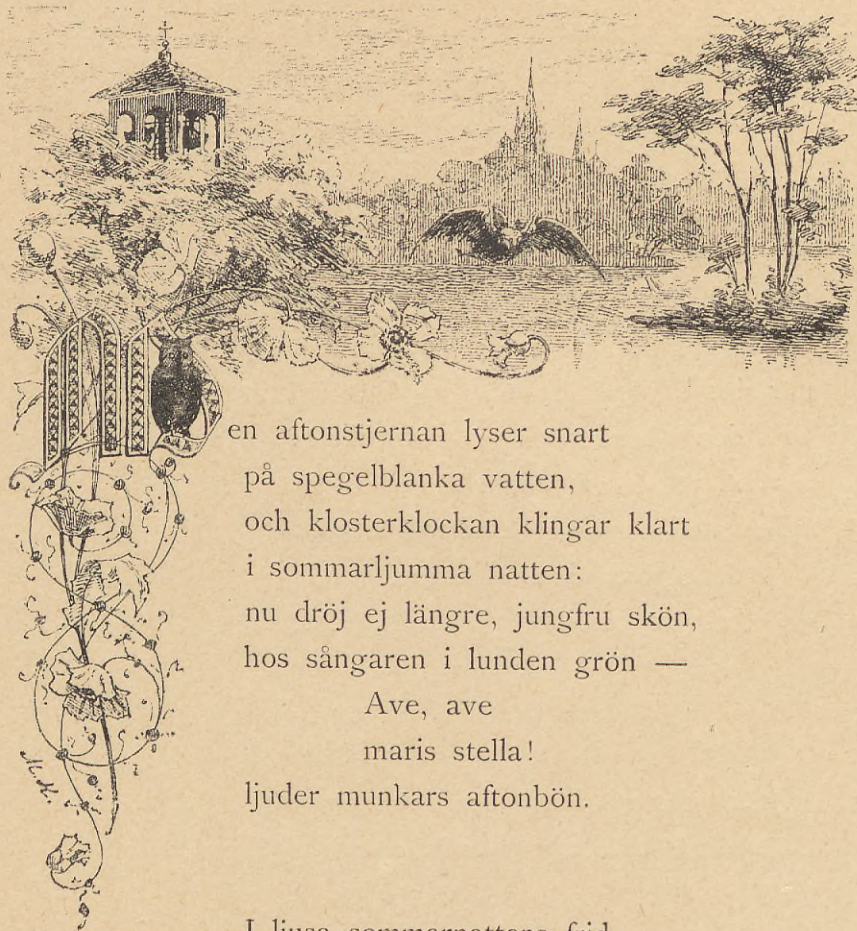 Men aftonstjernan lyser snart
på spegelblanka vatten,
och klosterklockan klingar klart
i sommarljumma natten:
nu dröj ej längre, jungfru skön,
hos sångaren i lunden grön —
Ave, ave
maris stella!
ljuder munkars aftonbön.
I ljusa sommarnattens frid
M. K.